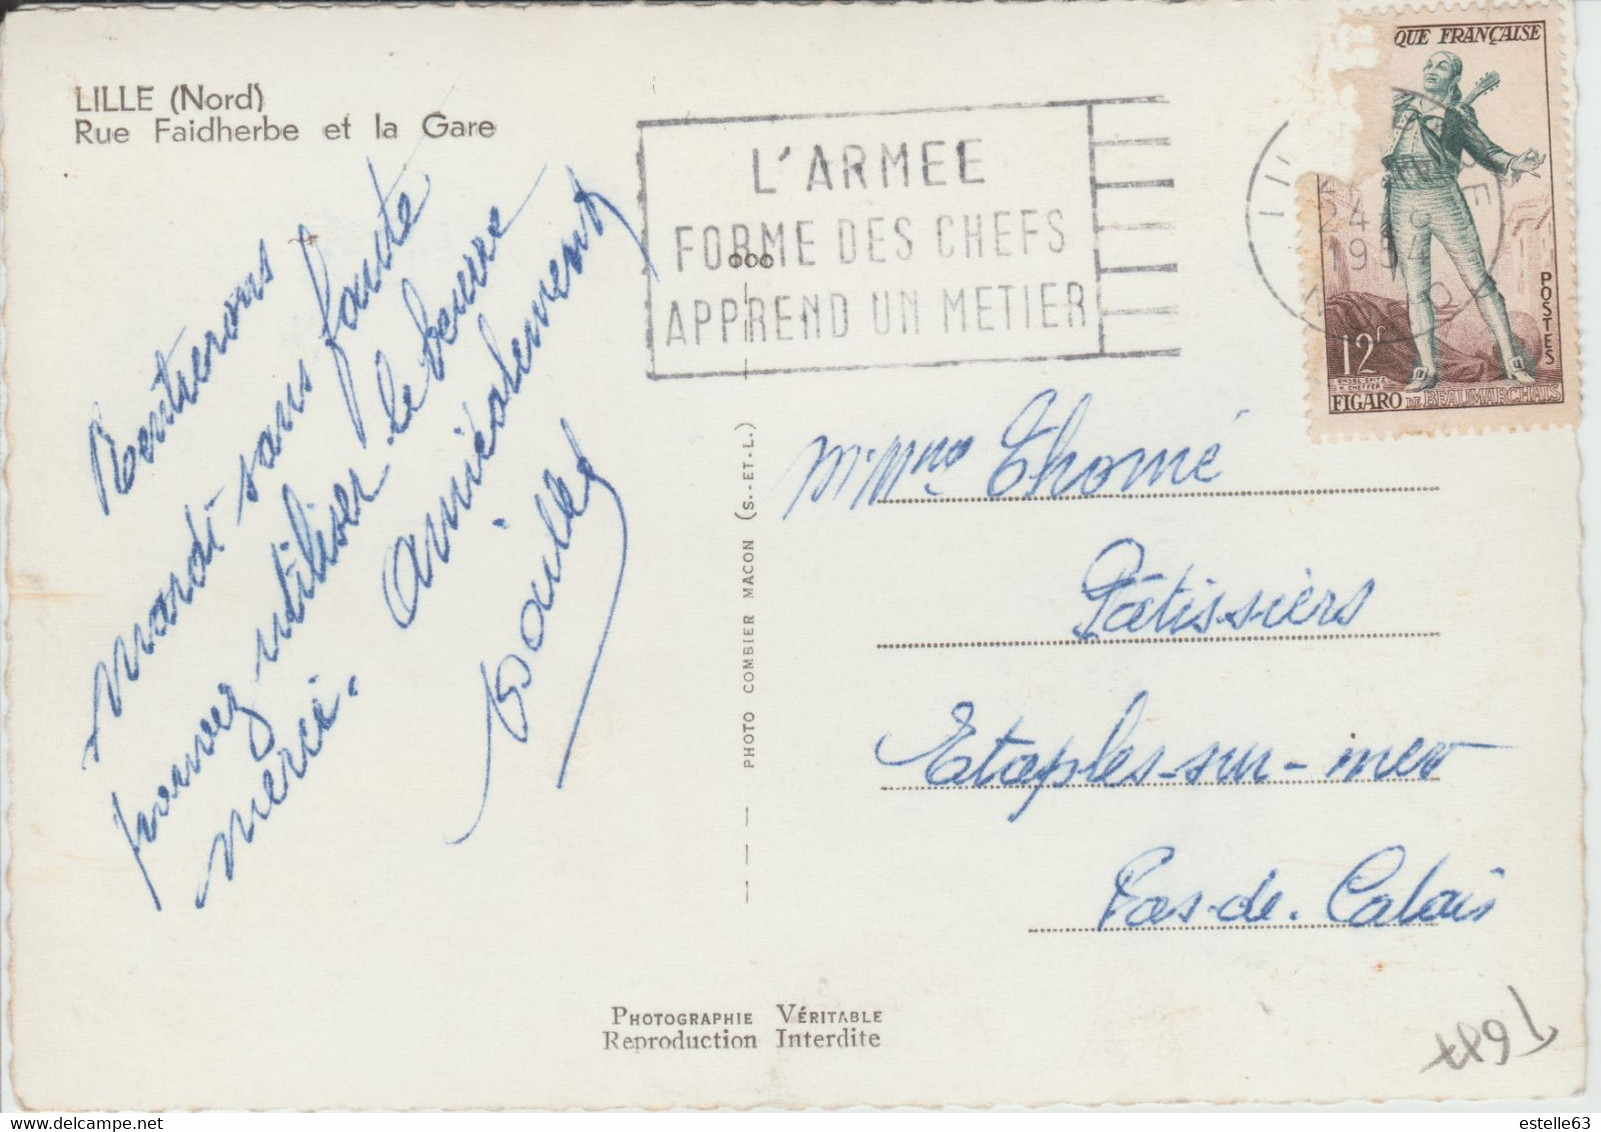 LILLE (Nord)
Rue Faidherbe et la Gare
Rentrerons
mardi sans faute
pouvez utiliser le beurre
merci. Amicalement
L'ARMEE
FORME DES CHEFS
APPREND UN METIER
QUE FRANÇAISE
POSTES
12F
FIGARO DE BEAUMARCHAIS
24
1954
M. Mme Thomé
Pâtissiers
Etaples-sur-mer
Pas-de-Calais
PHOTO COMBIER MACON (S.-ET-L.)
PHOTOGRAPHIE VÉRITABLE
Reproduction Interdite
estelle63